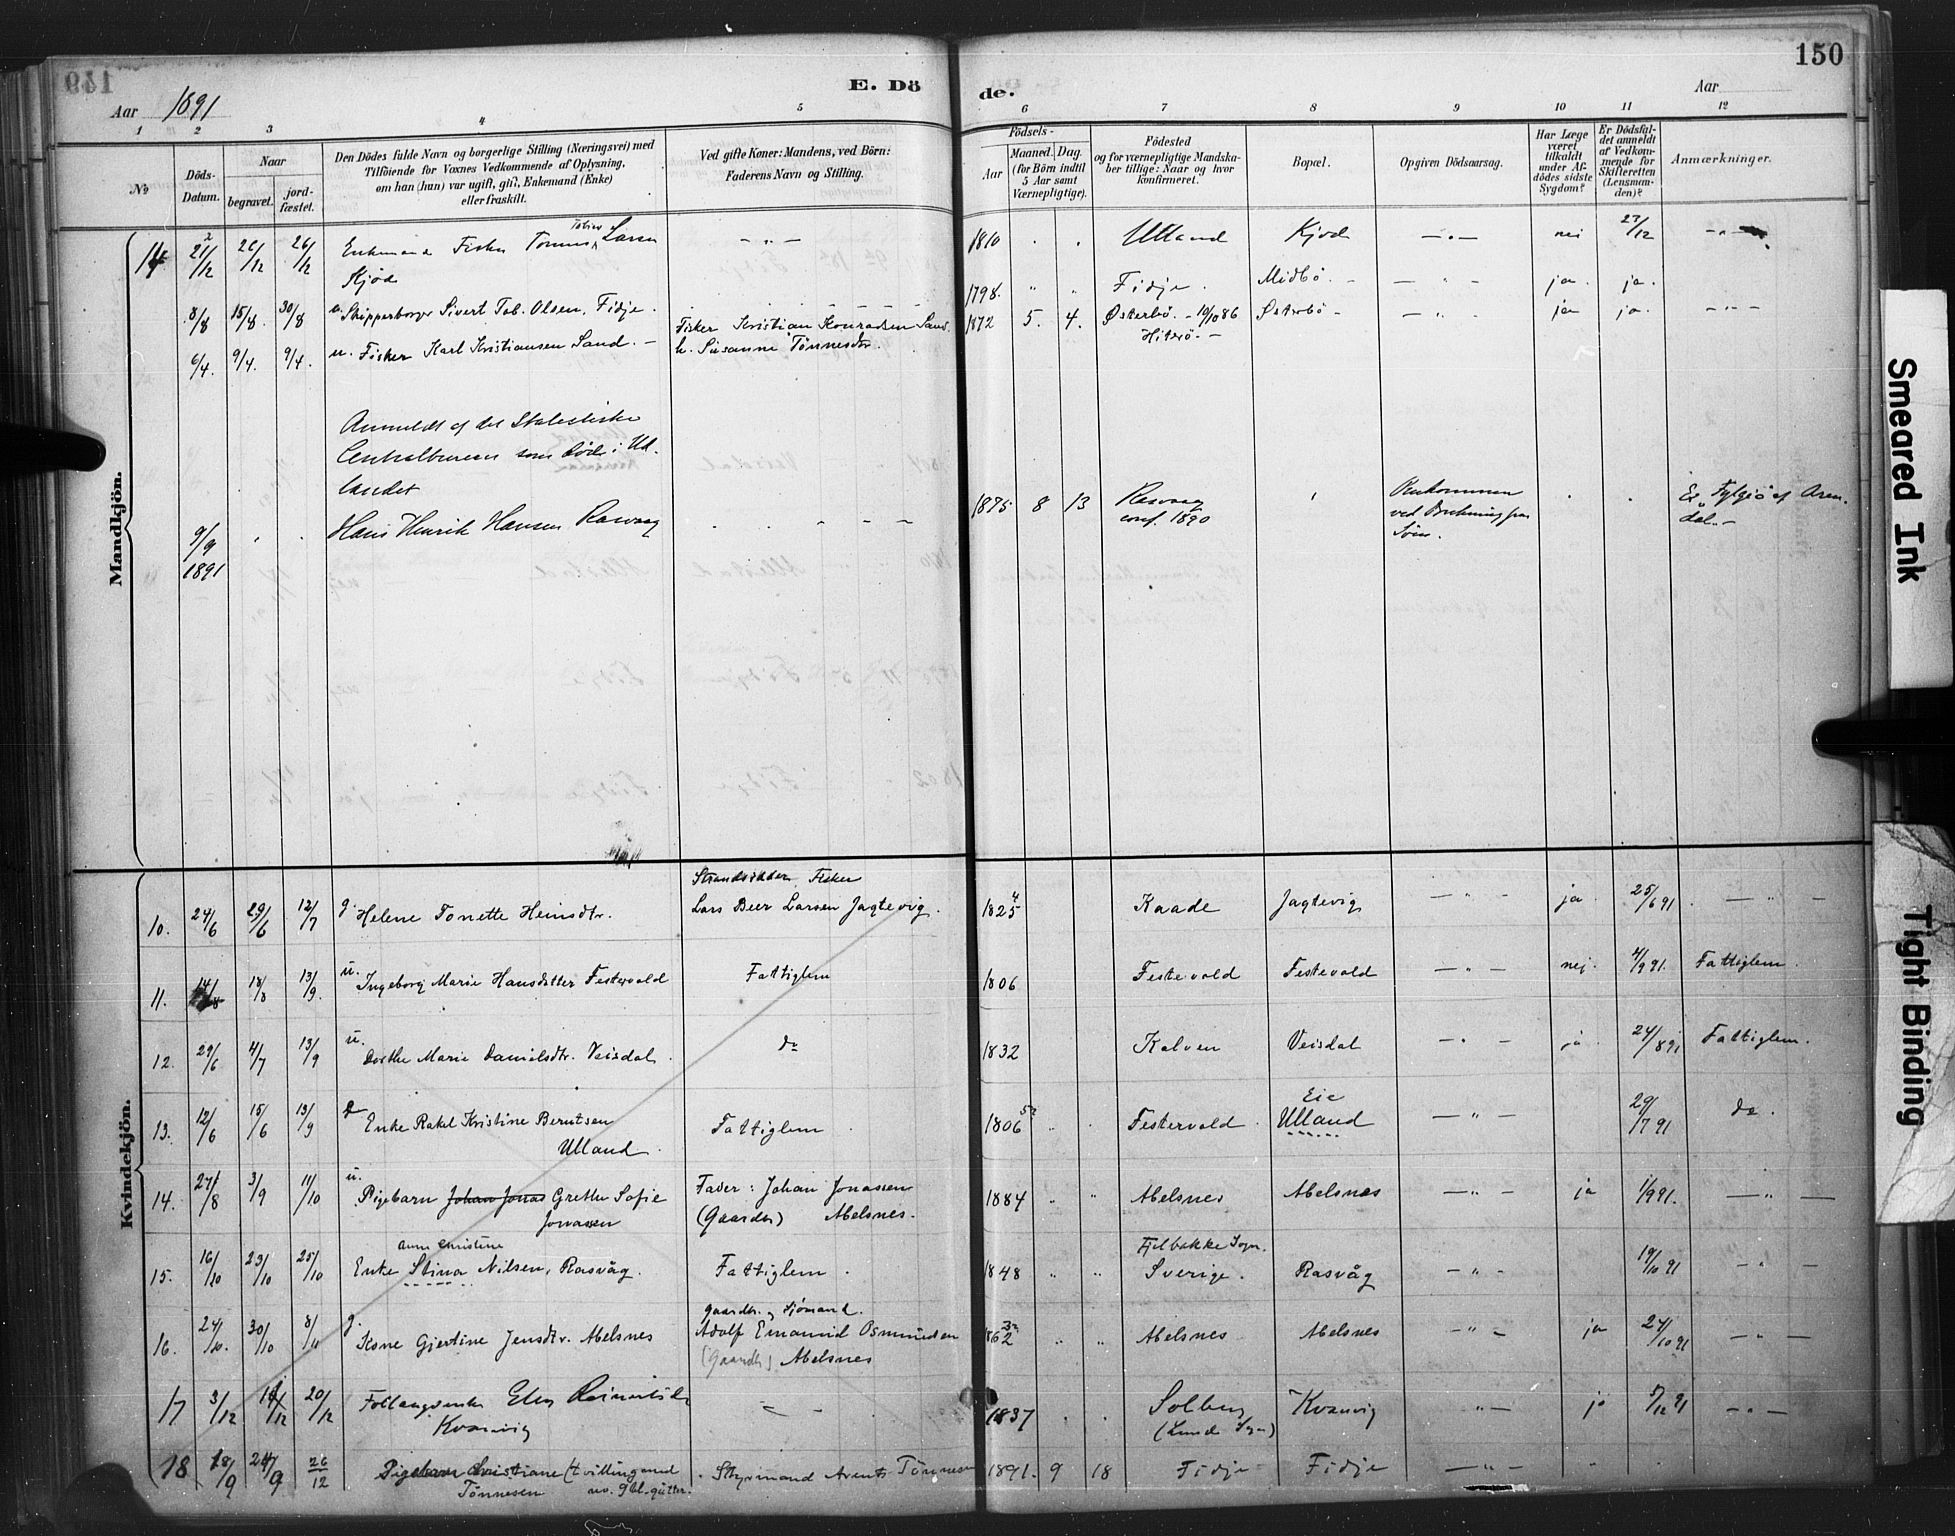 149
150
E. Dö
de.
Aar 1891
Aar
1 2 3 4 5 6 7 8 9 10 11 12
No
Döds-Datum.
Naar
begravet.
jord-fæstet.
Den Dödes fulde Navn og borgerlige Stilling (Næringsvei) med
Tilföiende for Voxnes Vedkommende af Oplysning,
om han (hun) var ugift, gift, Enkemand (Enke)
eller fraskilt.
Ved gifte Koner: Mandens, ved Börn:
Faderens Navn og Stilling.
Födsels-
Aar
Maaned. Dag.
(for Börn indtil
5 Aar samt
Værnepligtige).
Födested
og for værnepligtige Mandska-
ber tillige: Naar og hvor
konfirmeret.
Bopæl.
Opgiven Dödsaarsag.
Har Læge
været
tilkaldt
under Af-
dödes sidste
Sygdom?
Er Dödsfal-
det anmeldt
af Vedkom-
mende for
Skifteretten
(Lensman-
den)?
Anmærkninger.
Mandkjön.
14 21/12 26/12 26/12 Enkemand Fisker Tönnes Tobias Larsen — „ — 1810 Ulland Kjöd — „ — nei 23/12
Kjöd
1798. Fidje. Midbö. — ja. ja.
8/8 15/8. 30/8 u. Skipperborger Sivert Tob. Olsen, Fidje.
6/4. 9/4. 9/4. u. Fisker Karl Kristiansen Sand. — Fisker Kristian Konradsen Sand. 1872 5. 4. Østerbö. Østerbö — ja ja. — „ —
h. Susanne Tönnesdtr. Hiterö. —
Anmeldt af det Statistiske
Centralbureau som död i Ud-
landet
9/9 1891 Hans Henrik Hansen Rasvaag 1875 8 13 Rasvaag
conf. 1890
Omkommen
ved
Ex „Fylgia" af Aren-
dal. —
Kvindekjön.
Strandsidder, Fisker
10. 24/6 29/6 12/7 g. Helene Tonette Heinsdtr. Lars Beer Larsen Jagtevig. 1825 Kaade Jagtevig — „ — ja 25/6 91. — „ —
11. 14/8 18/8 13/9. u. Ingeborg Marie Hansdatter Festervold Fattiglem 1806 Festevold Festevold — „ — nej. 4/9 91. Fattiglem.
12. 29/6 4/7 13/9 u. Dorthe Marie Danielsdtr. Veisdal. do 1832 Kalven Veisdal — „ — ja 24/8 91 Fattiglem.
13. 12/6 15/6 13/9 Enke Rakel Kristine Berntsen Fattiglem 1806 Festervold. Eie Ulland — „ — 29/7 91 do.
Ulland.
14. 27/8 3/9 11/10 u. Pigebarn Johan Jonas Grethe Sofie Fader: Johan Jonassen 1884 Abelsnes Abelsnes — „ — ja 1/9 91. — „ —
Jonassen (Gaardbr) Abelsnes.
15. 16/10 23/10 25/10 Enke Anne Christine Stina Nilsen, Rasvåg. Fattiglem. 1848 Fjelbakke Sogn. Sverige. Rasvåg — „ — 19/10 91 — „ —
Gaardbr. og Sjömand.
16. 24/10. 30/10 8/11 g. Kone Gjertine Jensdtr. Abelsnes Adolf Emanuel Osmundsen 1862 Abelsnes Abelsnes — „ — ja 27/10 91 — „ —
(Gaardbr) Abelsnes
17 3/12 20/12 Elen 1837 Solberg Kvanvig — „ — ja 7/12 91 — „ —
Kvanvig (Lunde Sogn)
18 18/9 24/9 26/12 Pigebarn Christiane (tvilling med Styrmand Arent Tönnesen 1891. 9 18 Fidje Fidje — „ —
Tönnesen no. 9 bl. gutter.
Smeared Ink
Tight Binding